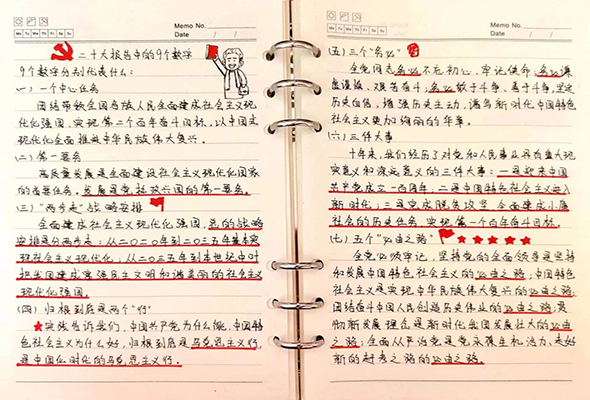 Memo No.
Mo Tu We Th Fr Sa Su
Date / /
二十大报告中的9个数字
9个数字分别代表什么:
(一) 一个中心任务
团结带领全国各族人民全面建成社会主义现
代化强国、实现第二个百年奋斗目标,以中国式
现代化全面推进中华民族伟大复兴。
(二) 第一要务
高质量发展是全面建设社会主义现代化国家
的首要任务。发展是党执政兴国的第一要务。
(三)“两步走”战略安排
全面建成社会主义现代化强国,总的战略
安排是分两步走:从二〇二〇年到二〇三五年基本实
现社会主义现代化;从二〇三五年到本世纪中叶
把我国建成富强民主文明和谐美丽的社会主义
现代化强国。
(四) 归根到底是两个“行”
实践告诉我们,中国共产党为什么能,中国特
色社会主义为什么好,归根到底是马克思主义行,
是中国化时代化的马克思主义行。
Memo No.
Mo Tu We Th Fr Sa Su
Date / /
(五) 三个“务必”
全党同志务必不忘初心、牢记使命,务必谦
虚谨慎、艰苦奋斗,务必敢于斗争、善于斗争,坚定
历史自信,增强历史主动,谱写新时代中国特色
社会主义更加绚丽的华章。
(六) 三件大事
十年来,我们经历了对党和人民事业具有重大现
实意义和深远意义的三件大事:一是迎来中国
共产党成立一百周年,二是中国特色社会主义进入
新时代,三是完成脱贫攻坚、全面建成小康
社会的历史任务,实现第一个百年奋斗目标。
(七) 五个“必由之路”
全党必须牢记,坚持党的全面领导是坚持
和发展中国特色社会主义的必由之路;中国特色
社会主义是实现中华民族伟大复兴的必由之路;
团结奋斗是中国人民创造历史伟业的必由之路;贯
彻新发展理念是新时代我国发展壮大的必由之
之路;全面从严治党是党永葆生机活力、走好
新的赶考之路的必由之路。